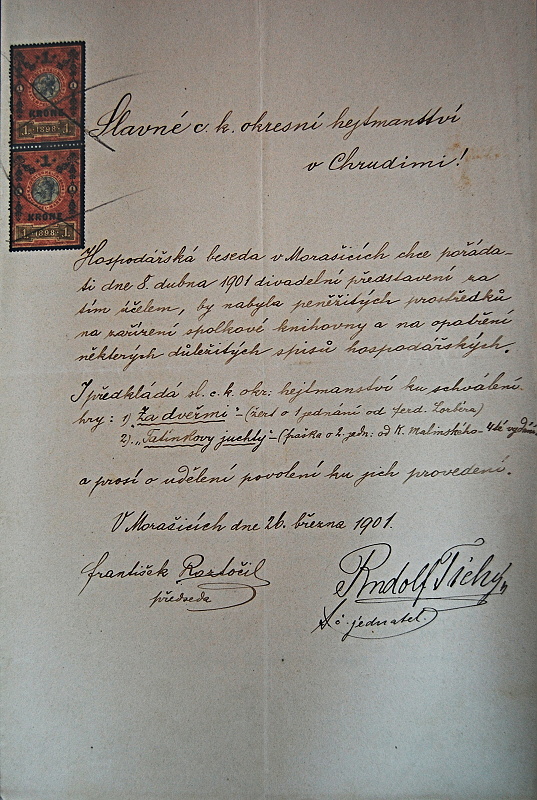 1
KRONE
1. 1898 1.
1
KRONE
1. 1898 1.
Slavné c. k. okresní hejtmanství
v Chrudimi!
Hospodářská beseda v Morašicích chce pořáda-
ti dne 8. dubna 1901 divadelní představení za
tím účelem, by nabyla peněžitých prostředků
na zařízení spolkové knihovny a na opatření
některých důležitých spisů hospodářských.
I předkládá sl. c. k. okr. hejtmanství ku schválení
hry: 1) „Za dveřmi" - (žert o 1 jednání od Ferd.
2) „Tatínkovy juchty" - (fraška o 2. jedn: od K. Malínského - 4té vydání
a prosí o udělení povolení ku jich provedení.
V Morašicích dne 26. března 1901.
František Roztočil
předseda
Rudolf Tichý
jednatel.